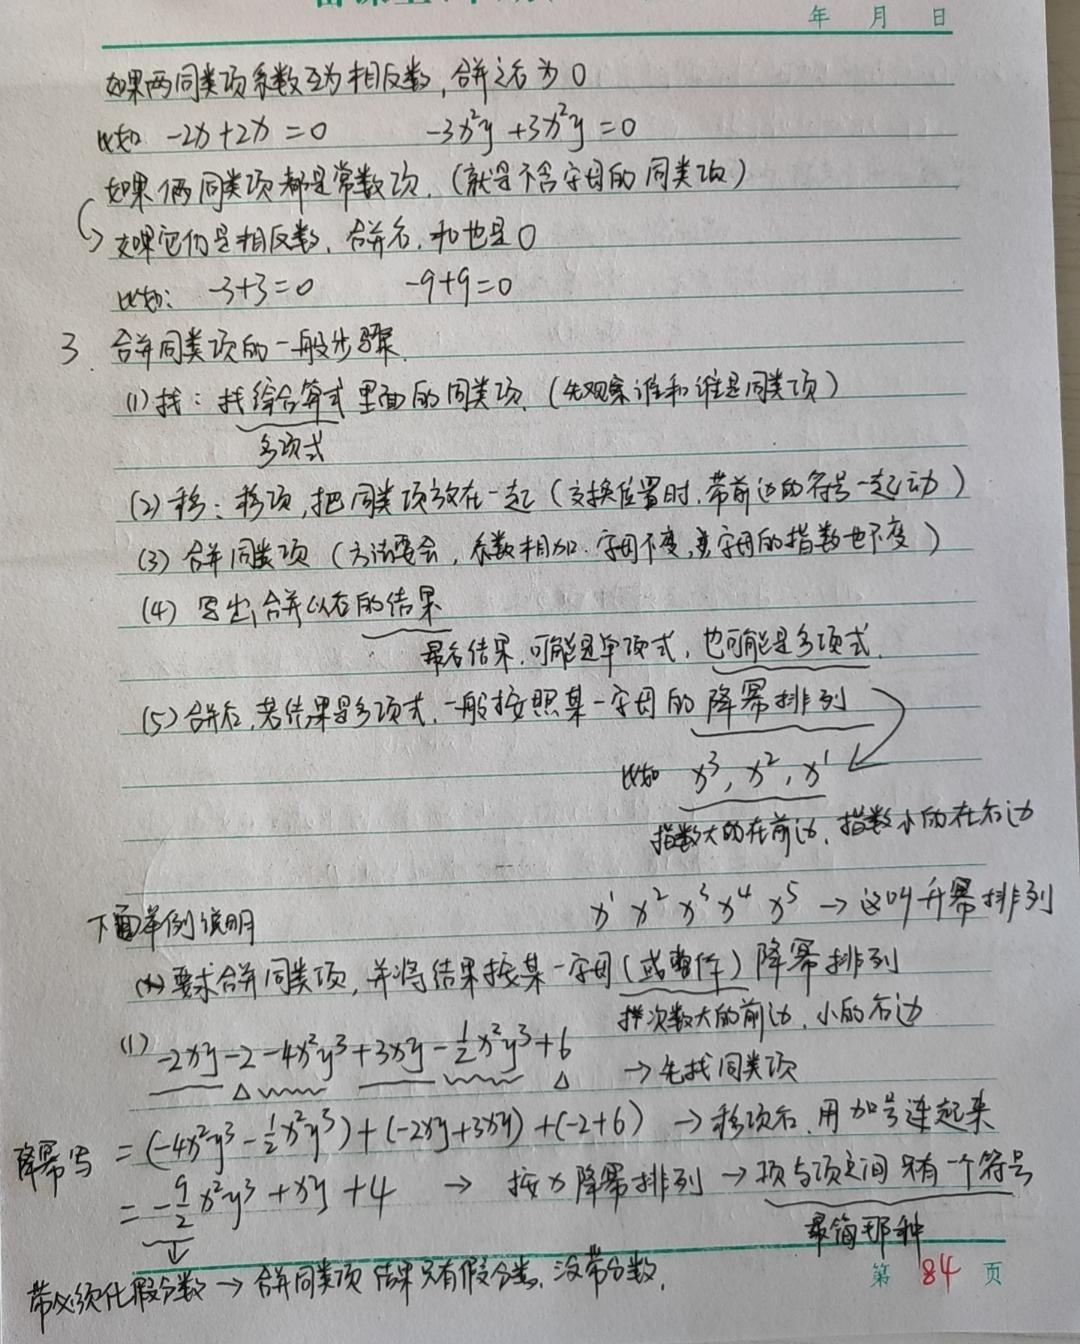 年 月 日
如果两同类项系数互为相反数,合并之后为0
比如 -2x+2x=0 -3x²y+3x²y=0
如果俩同类项都是常数项.(就是不含字母的同类项)
如果它们是相反数,合并后,和也是0
比如: -3+3=0 -9+9=0
3. 合并同类项的一般步骤.
(1)找:找综合算式里面的同类项.(先观察谁和谁是同类项)
多项式
(2)移:移项,把同类项放在一起(交换位置时,带前边的符号一起动)
(3)合并同类项(方法要会,系数相加.字母不变,字母的指数也不变)
(4)写出合并以后的结果
最后结果,可能是单项式,也可能是多项式.
(5)合并后,若结果是多项式,一般按照某一字母的降幂排列
比如 x³,x²,x¹
指数大的在前边,指数小的在右边
x¹ x² x³ x⁴ x⁵ →这叫升幂排列
下面举例说明
要求合并同类项,并将结果按某一字母(或整体)降幂排列
次数大的前边,小的右边
(1) -2xy-2-4x²y³+3xy-½x²y³+6
→先找同类项
降幂写 =(-4x²y³-½x²y³)+(-2xy+3xy)+(-2+6) →移项后,用加号连起来
=-9/2x²y³+xy+4 → 按x降幂排列→项与项之间只有一个符号
最简那种
带必须化假分数→合并同类项 结果只有假分数,没带分数.
第 84 页